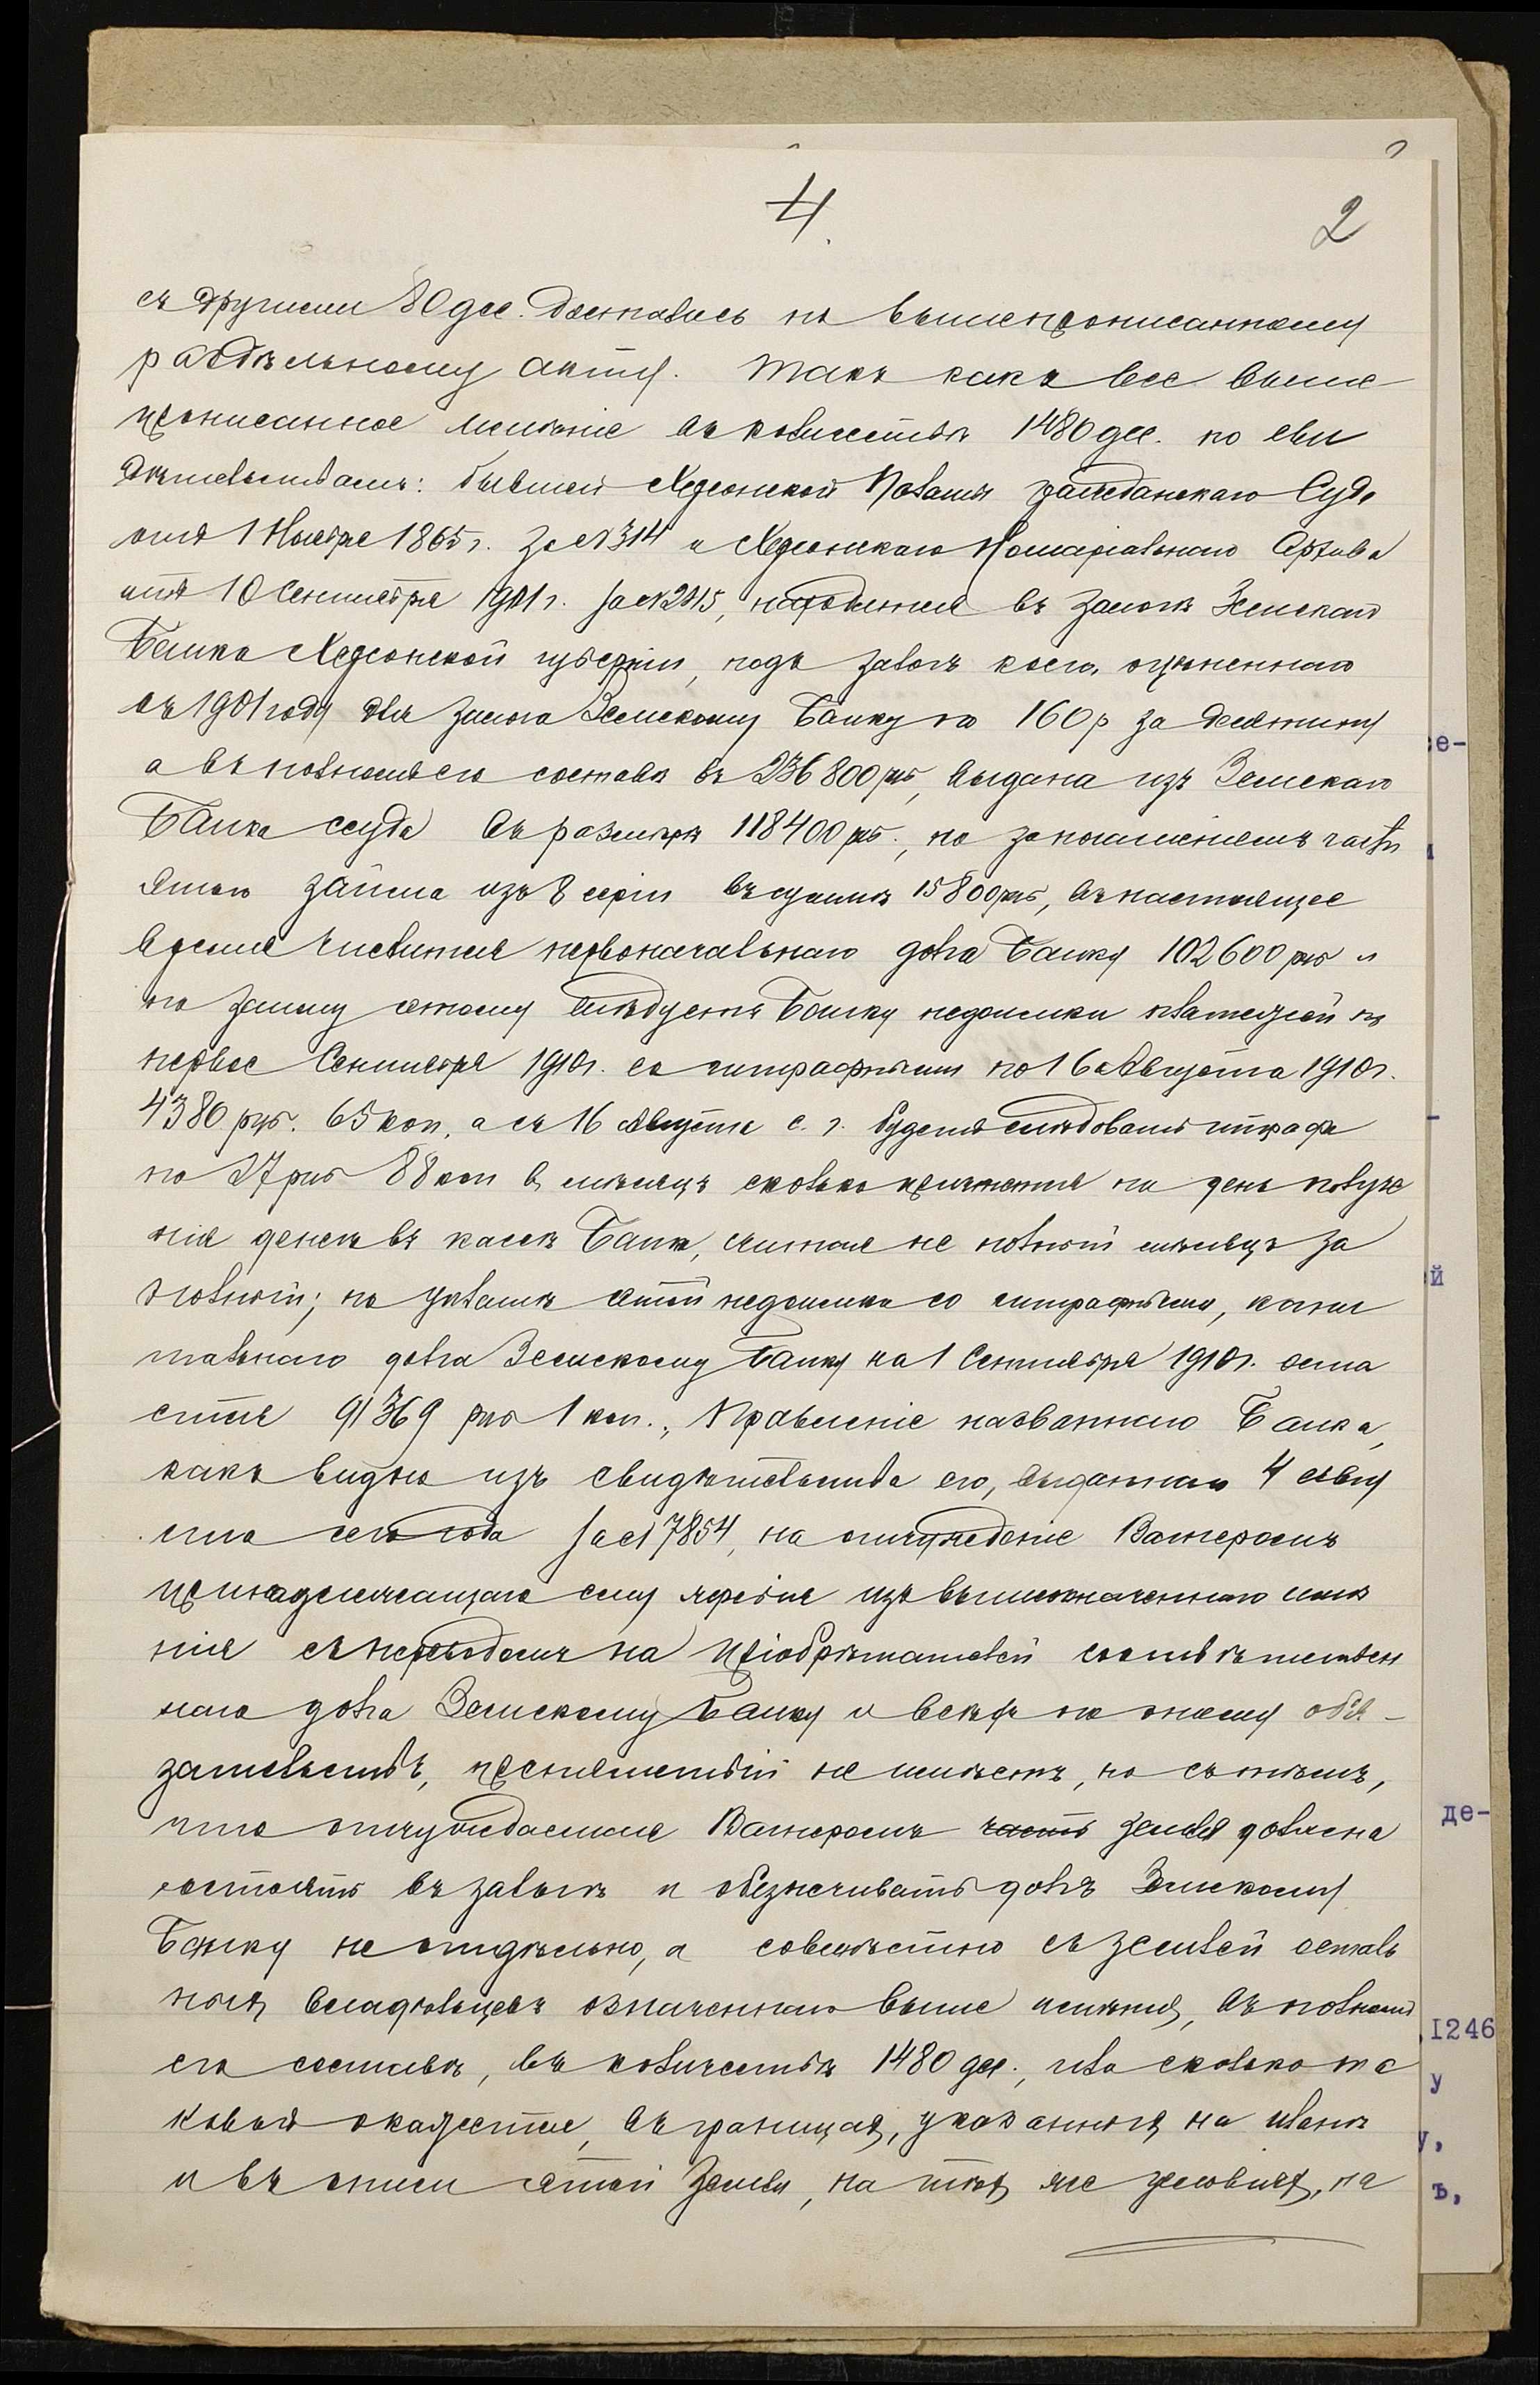 4.
2
съ другими 80 дес. достались по вышепрописанному
раздѣльному акту. Такъ какъ все выше
прописанное имѣніе въ количествѣ 1480 дес. по сви
дѣтельствамъ: бывшей Херсонской Палаты Гражданскаго Суда
отъ 1 Ноября 1865 г. за № 314 и Херсонскаго Нотаріальнаго Архива
отъ 10 Сентября 1901 г. за № 2415, находится въ залогѣ Земскаго
Банка Херсонской губерніи, подъ залогъ коего, оцѣненнаго
въ 1901 году для залога Земскому Банку по 160 р за десятину
а въ полномъ его составѣ въ 236800 руб, выдана изъ Земскаго
Банка ссуда въ размѣрѣ 118400 руб., но за погашеніемъ части
этого займа изъ 8 серіи въ суммѣ 15800 руб, въ настоящее
время числится первоначальнаго долга Банку 102600 руб и
по займу этому слѣдуетъ Банку недоимки платежей по
первое Сентября 1910 г. со штрафными по 16 Августа 1910 г.
4380 руб. 65 коп, а съ 16 Августа с. г. будетъ слѣдовать штрафа
по 27 руб 88 коп въ мѣсяцъ сколько причтется по день получе
нія денегъ въ кассѣ Банка, считая не полный мѣсяцъ за
полный; по уплатѣ этой недоимки со штрафными, капи
тальнаго долга Земскому Банку на 1 Сентября 1910 г. оста
ется 91369 руб 1 коп., Правленіе названнаго Банка,
какъ видно изъ свидѣтельства его, выданнаго 4 Авгу
ста сего года за № 7854, на отчужденіе Вагнеромъ
принадлежащаго ему жребія изъ вышеозначеннаго имѣ
нія съ переводомъ на пріобрѣтателей соотвѣтствен
наго долга Земскому Банку и всѣхъ по оному обя-
зательствъ, препятствій не имѣетъ, но съ тѣмъ,
что отчуждаемая Вагнеромъ часть земля должна
состоять въ залогѣ и обезпечивать долгъ Земскому
Банку не отдѣльно, а совмѣстно съ землей осталь
ныхъ владѣльцевъ означеннаго выше имѣнія, въ полномъ
его составѣ, въ количествѣ 1480 дес., или сколько та
ковой окажется, въ границахъ, указанныхъ на планѣ
и въ описи этой земли, на тѣхъ же условіяхъ, на
е-
-
й
де-
1246
у
у,
ъ,